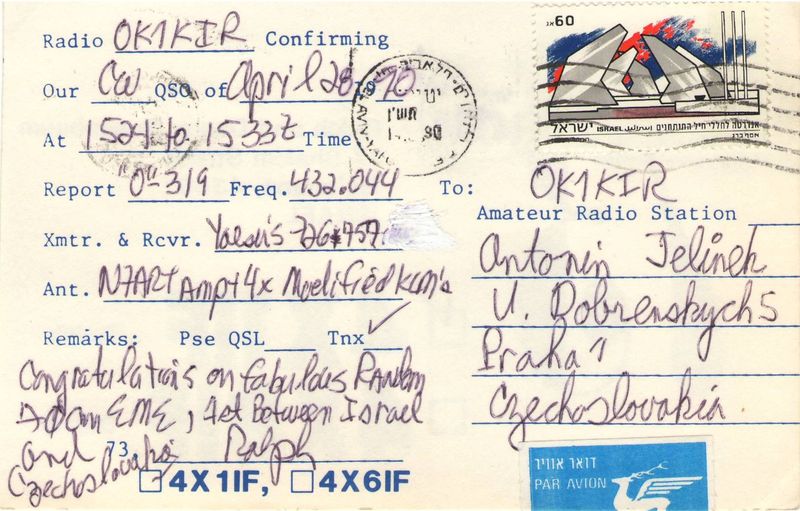 Radio OK1KIR Confirming
Our CW QSO of April 28 1990
At 1524 to 1533Z Time
Report "O"-319 Freq. 432.044
Xmtr. & Rcvr. Yaesu's 726+757
Ant. N7ART Amp+4x Modified KLM's
Remarks: Pse QSL Tnx ✓
Congratulations on fabulous Random
70cm EME, 1st Between Israel
and 73, Ralph
Czechoslovakia
4X1IF, 4X6IF
60 אג
ישראל ISRAEL
אנדרטה לחללי חיל-התותחנים
To: OK1KIR
Amateur Radio Station
Antonin Jelinek
U. Dobrenskych 5
Praha 1
Czechoslovakia
דואר אוויר
PAR AVION